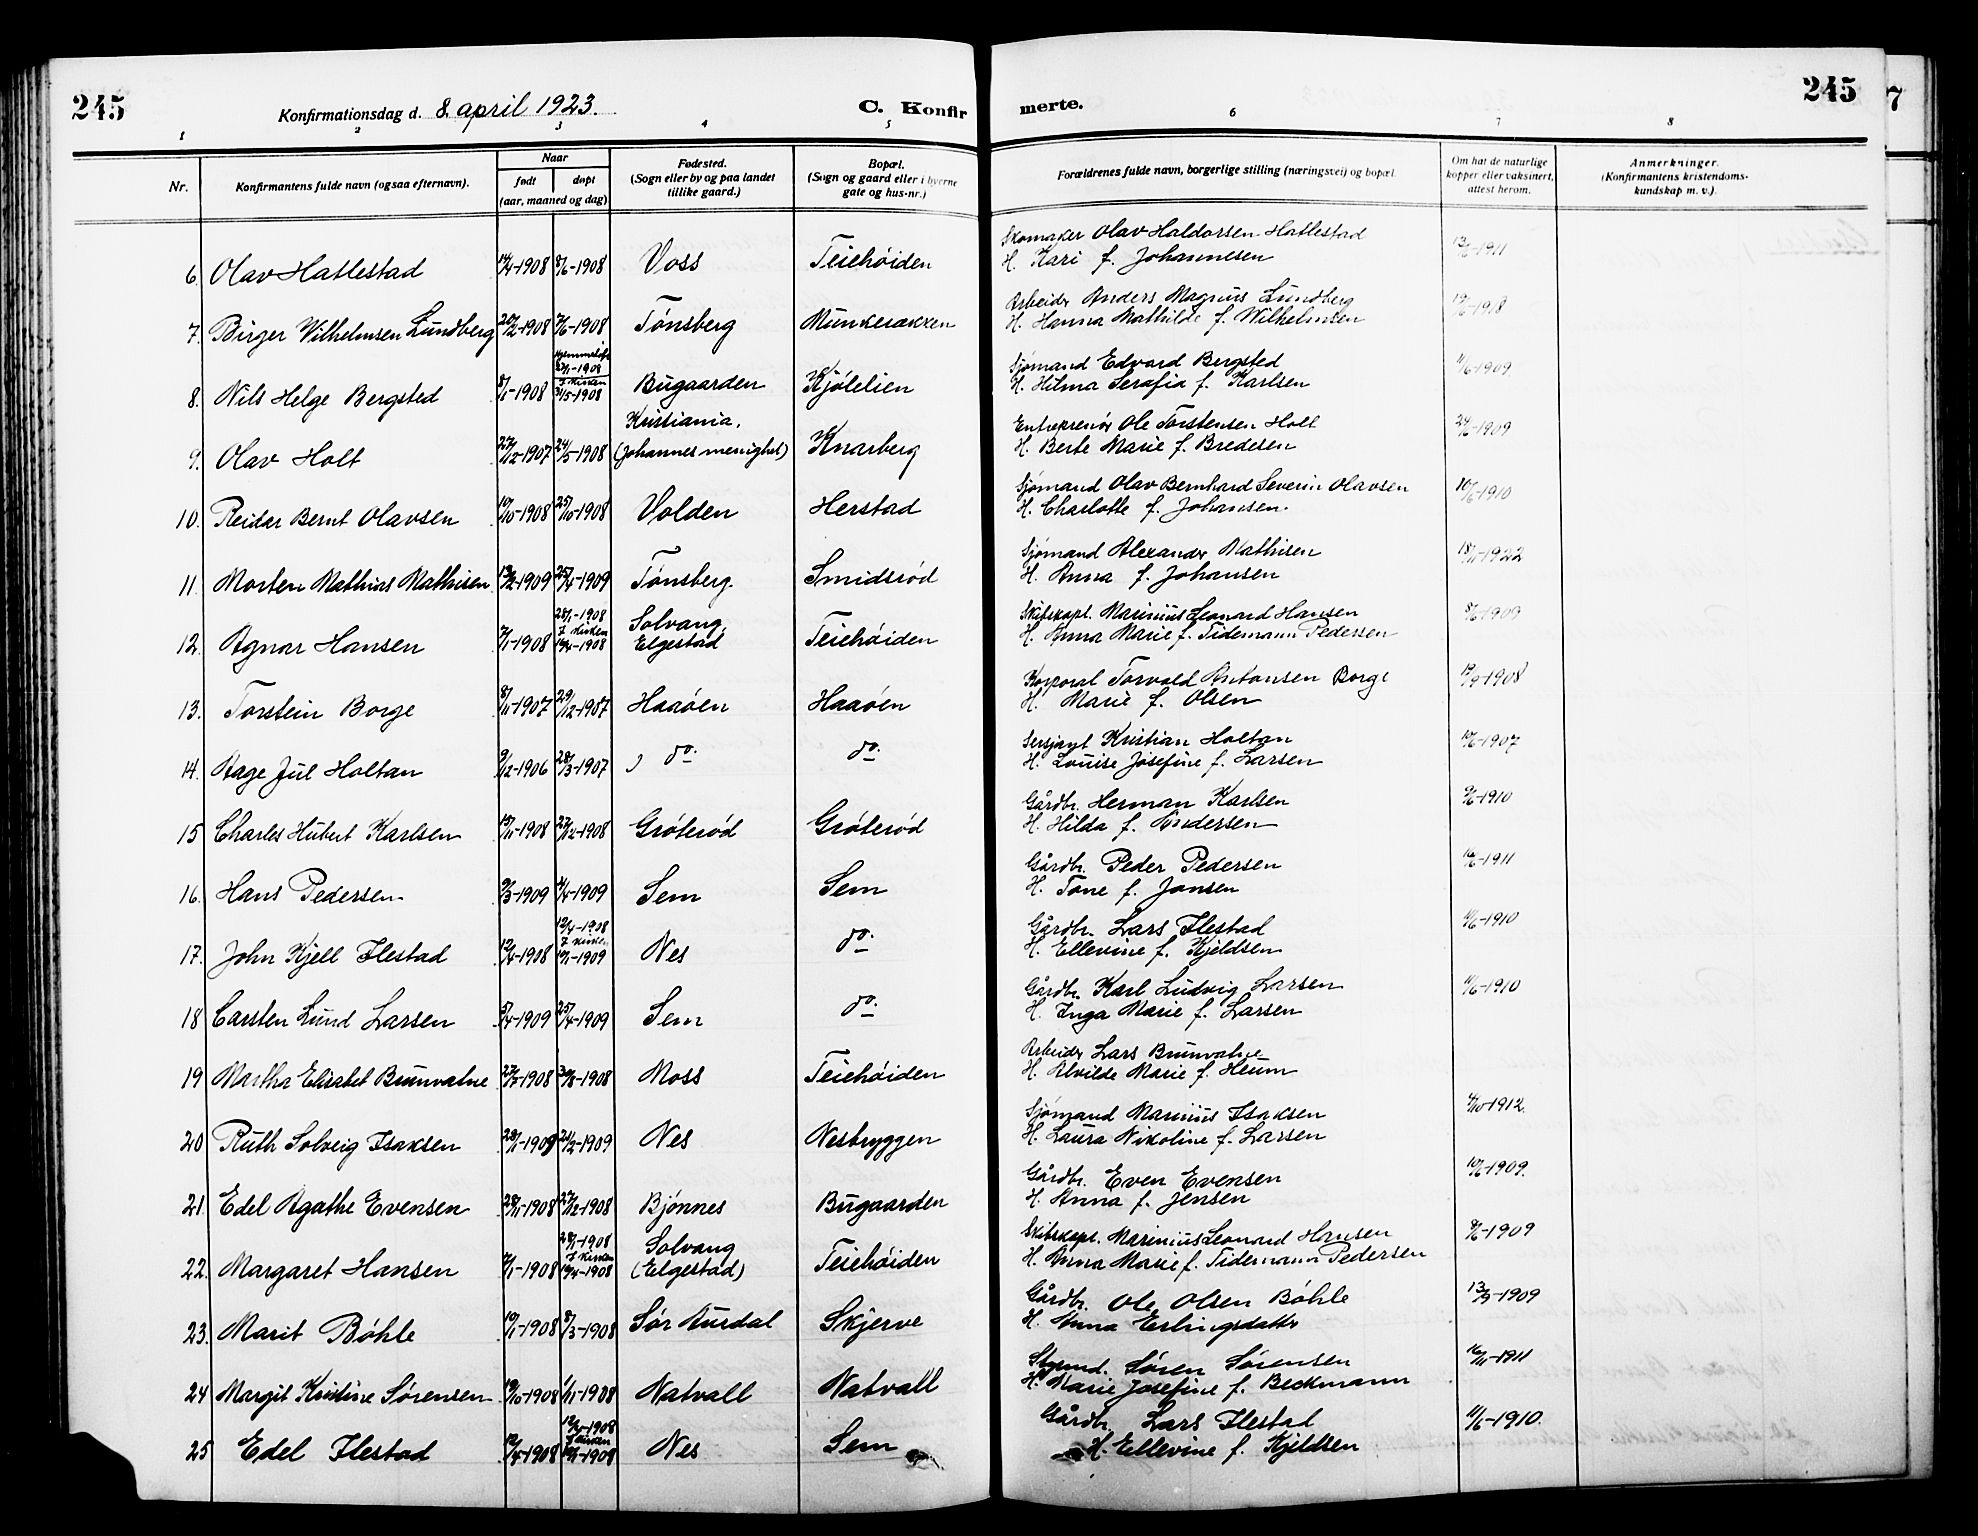 245
Konfirmationsdag d. 8. april 1923.
C. Konfir
merte.
245
1 2 3 4 5 6 7 8
Nr.
Konfirmantens fulde navn (ogsaa efternavn).
Naar
født døpt
(aar, maaned og dag)
Fødested.
(Sogn eller by og paa landet
tillike gaard.)
Bopæl.
(Sogn og gaard eller i byerne
gate og hus-nr.)
Forældrenes fulde navn, borgerlige stilling (næringsvei) og bopæl.
Om hat de naturlige
kopper eller vaksinert,
attest herom.
Anmerkninger.
(Konfirmantens kristendoms-
kundskap m. v.)
Skomaker Olav Haldorsen Hatlestad
6. Olav Hatlestad 14/4-1908 8/6-1908 Voss Teiehøiden H. Kari f. Johannesen 1911
Arbeider Anders Magnus Lundberg
7. Birger Wilhelmsen Lundberg 1908 7/6-1908 Tønsberg Munkerækken H. Hanna Mathilde f. Wilhelmsen
hjemmedøpt
1908
I kirken
Sjømand Edvard Bergsted
8. Nils Helge Bergsted 8/1-1908 31/5-1908 Bugaarden Kjølelien H. Hilma Serafia f. Karlsen 11/6-1909
Kristiania,
Entreprenør Ole Torstensen Holt
9. Olav Holt 27/12-1907 24/5-1908 (Johannes menighet) Knarberg H. Berte Marie f. Bredesen 1909
Sjømand Olav Bernhard Severin Olavsen
10. Reidar Bernt Olavsen 10/10-1908 25/10-1908 Volden Herstad H. Charlotte f. Johansen. 10/6-1910
Sjømand Alexander Mathisen
11. Morten Mathias Mathisen 13/2-1909 25/4-1909 Tønsberg. Smidsrød H. Anna f. Johansen 18/11-1922
28/1-1908
I kirken
Solvang,
Skibskapt. Marinius Leonard Hansen
12. Agnar Hansen 7/1-1908 19/4-1908 Elgestad Teiehøiden H. Anna Marie f. Tidemann Pedersen 8/6-1909
Korporal Torvald Antonsen Borge
13. Torstein Borge 8/11-1907 29/12-1907 Haaøen Haaøen H. Marie f. Olsen 1908
Sersjant Kristian Holtan
14. Aage Jul Holtan 9/12-1906 28/3-1907 do. do. H. Louise Josefine f. Larsen 1907
Gårdbr. Herman Karlsen
15 Charles Hubert Karlsen 15/11-1908 27/12-1908 Grøterød Grøterød H. Hilda f. Andersen 1910
Gårdbr. Peder Pedersen
16. Hans Pedersen 9/3-1909 4/4-1909 Sem Sem H. Tone f. Jansen 1911
12/4-1908
I kirken
Gårdbr. Lars Ilestad
17. John Kjell Ilestad 12/4-1908 1909 Nes do. H. Ellevine f. Kjeldsen 11/6-1910
Gårdbr. Karl Ludvig Larsen
18 Carsten Lund Larsen 5/4-1909 25/4-1909 Sem do. H. Inga Marie f. Larsen 11/6-1910
Arbeider Lars Brunvatne
19 Martha Elisabet Brunvatne 1908 30/8-1908 Moss Teiehøiden H. Alvilde Marie f. Heum
Sjømand Marinius Isaksen
20 Ruth Solveig Isaksen 28/1-1909 21/2-1909 Nes Nesbryggen H. Laura Nikoline f. Larsen 1912.
Gårdbr. Even Evensen
21. Edel Agathe Evensen 28/11-1908 27/12-1908 Bjønnes Bugaarden H. Anna f. Jensen 10/6-1909.
28/1-1908
I kirken
Solvang
Skibskapt. Marinius Leonard Hansen
22. Margaret Hansen 7/1-1908 19/4-1908 (Elgestad) Teiehøiden H. Anna Marie f. Tidemann Pedersen 8/6-1909
Gårdbr. Ole Olsen Bøhle
23. Marit Bøhle 19/1-1908 8/3-1908 Sør Aurdal Skjerve H. Anna Erlingsdatter 1909
Styrmd. Søren Sørensen
24 Margit Kristine Sørensen 1908 1/11-1908 Natvall Natvall H. Marie Josefine f. Beckmann 1911
12/4-1908
I kirken
Gårdbr. Lars Ilestad
25 Edel Ilestad 12/4-1908 1908 Nes Sem H. Ellevine f. Kjeldsen 11/6-1910.